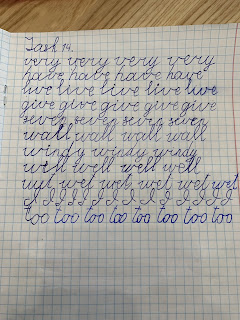 Task 14.
very very very very
have have have have
live live live live live
give give give give give
seven seven seven seven
wall wall wall wall
windy windy windy
well well well well
wet wet wet wet wet wet
I I I I I I I I I I I I
too too too too too too too too